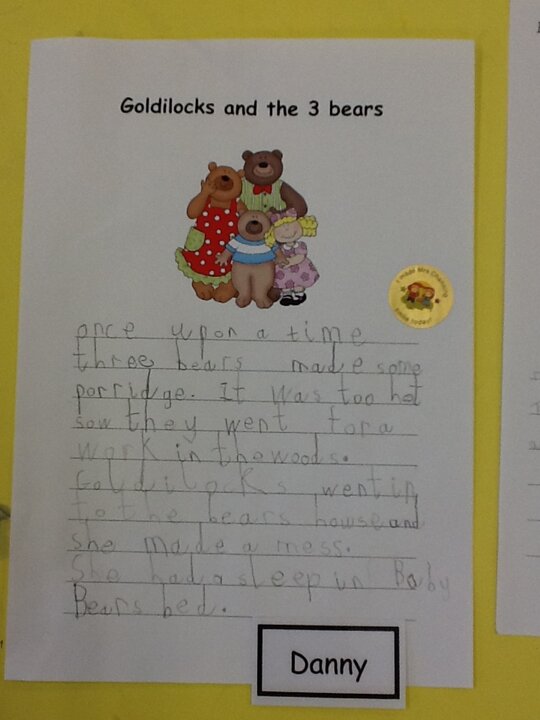 Goldilocks and the 3 bears
once upon a time
three bears made some
porridge. It was too hot
sow they went for a
work in the woods.
Goldilocks went in
to the bears howse and
she made a mess.
She had a sleep in Baby
Bears bed.
Danny